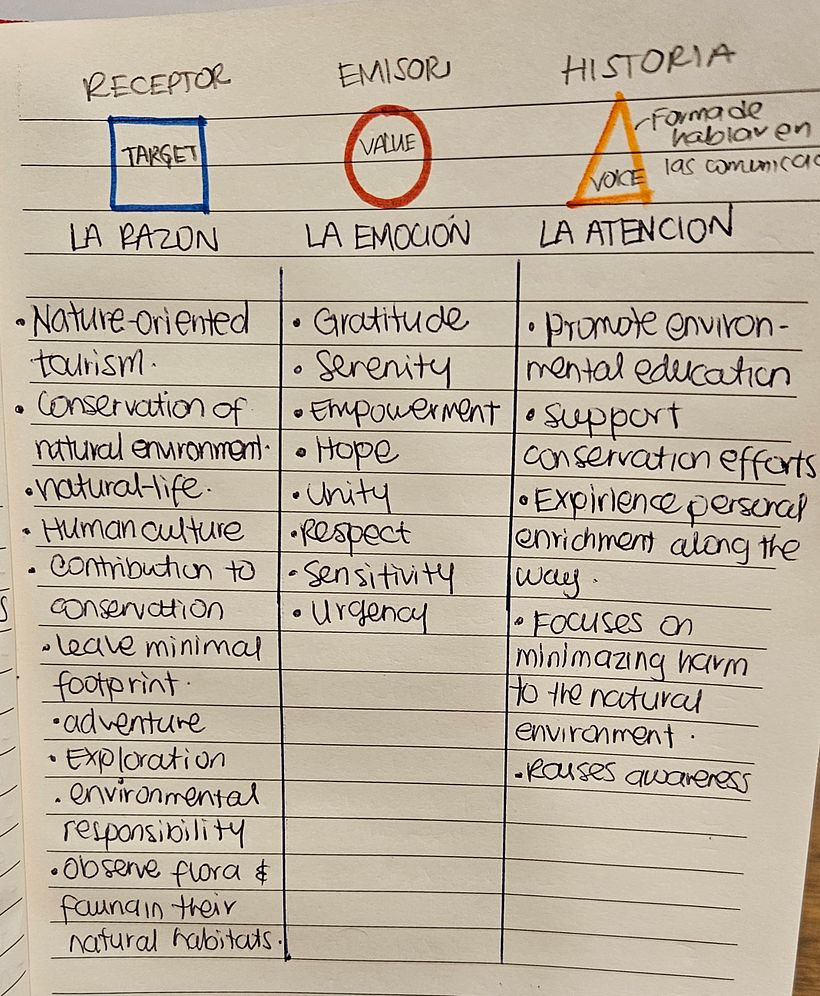 RECEPTOR
TARGET
LA RAZON
• Nature-oriented
tourism.
• Conservation of
natural environment.
• natural-life.
• Human culture
• contribution to
conservation
• leave minimal
footprint.
• adventure
• Exploration
• environmental
responsibility
• Observe flora &
fauna in their
natural habitats.
EMISOR
VALUE
LA EMOCIÓN
• Gratitude
• Serenity
• Empowerment
• Hope
• Unity
• Respect
• Sensitivity
• Urgency
HISTORIA
Forma de
hablar en
las comunicac
VOICE
LA ATENCION
• Promote environ-
mental education
• Support
conservation efforts
• Expirience personal
enrichment along the
way.
• Focuses on
minimazing harm
to the natural
environment.
• Rouses awareness